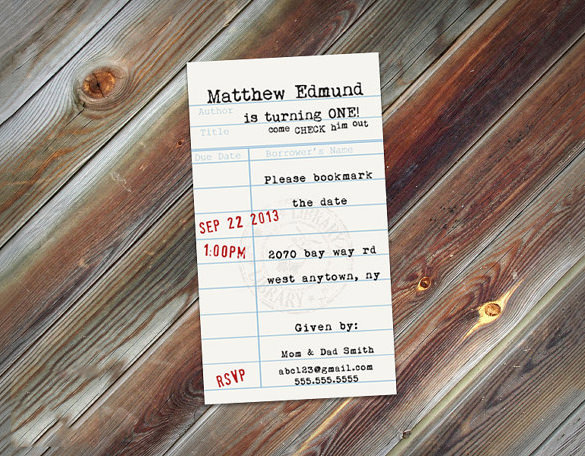 Matthew Edmund
Author
is turning ONE!
Title
come CHECK him out
Due Date
Borrower's Name
Please bookmark
the date
SEP 22 2013
LIBRARY
1:00PM
2070 bay way rd
west anytown, ny
LIBRARY
Given by:
Mom & Dad Smith
RSVP
abc123@gmail.com
555.555.5555